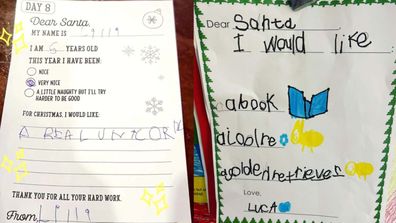 DAY 8
DEAR SANTA,
MY NAME IS
I AM 6 YEARS OLD
THIS YEAR I HAVE BEEN:
NICE
VERY NICE
A LITTLE NAUGHTY BUT I'LL TRY
HARDER TO BE GOOD
FOR CHRISTMAS, I WOULD LIKE:
A REAL UNICOR
THANK YOU FOR ALL YOUR HARD WORK.
From
Dear Santa
I would like:
a book
goldenretriever
Love,
LUCA